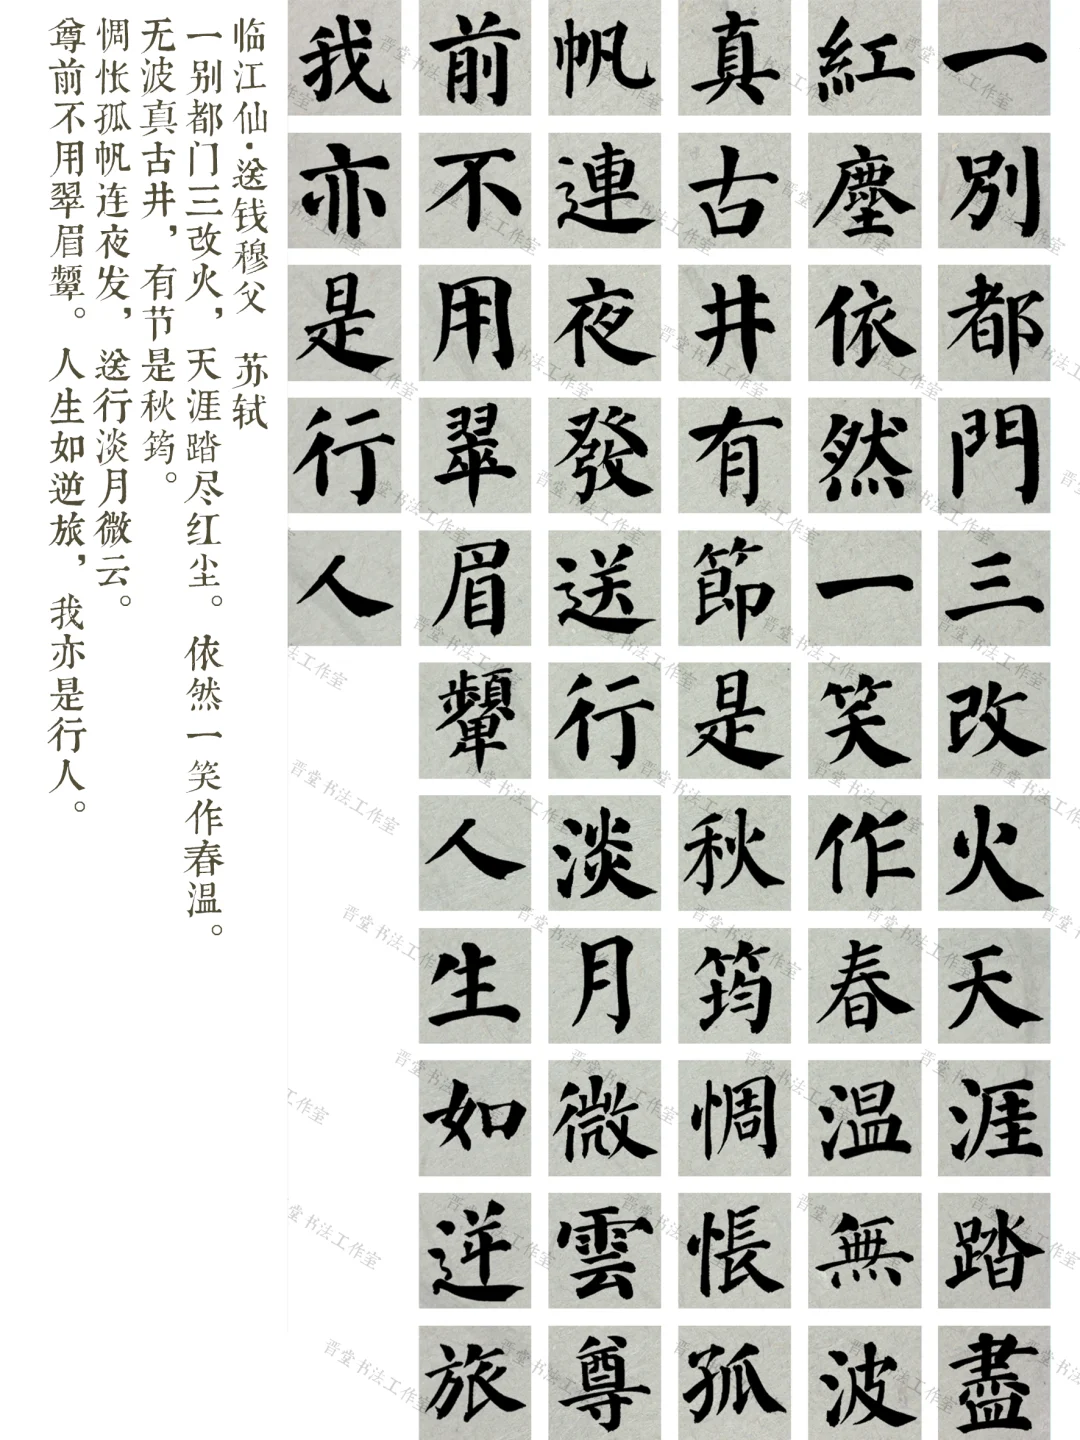 一別都門三改火天涯踏盡
紅塵依然一笑作春温無波
真古井有節是秋筠惆悵孤
帆連夜發送行淡月微雲尊
前不用翠眉顰人生如逆旅
我亦是行人
临江仙·送钱穆父 苏轼
一别都门三改火，天涯踏尽红尘。依然一笑作春温。
无波真古井，有节是秋筠。
惆怅孤帆连夜发，送行淡月微云。
尊前不用翠眉颦。人生如逆旅，我亦是行人。
晋堂书法工作室